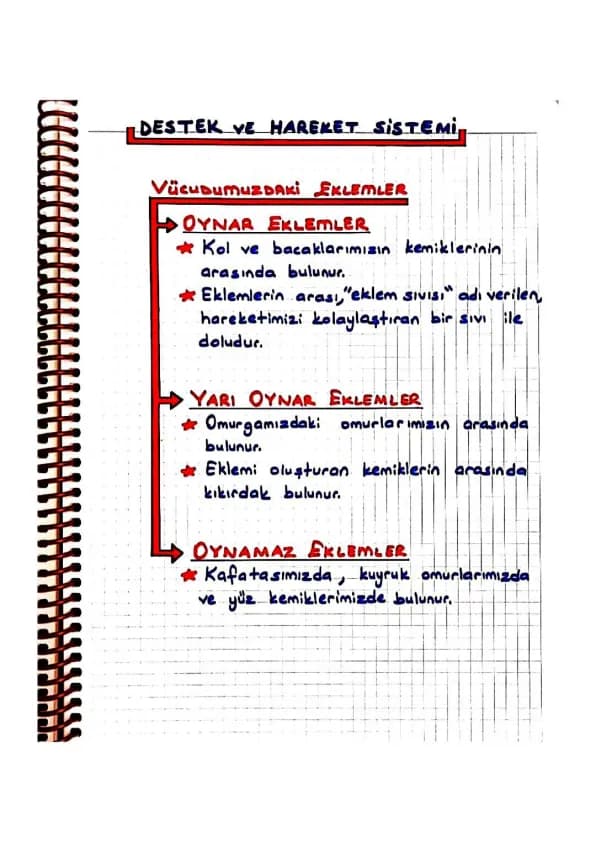 DESTEK VE HAREKET SİSTEMİ
VÜCUDUMUZDAKİ EKLEMLER
OYNAR EKLEMLER
★ Kol ve bacaklarımızın kemiklerinin
arasında bulunur.
★ Eklemlerin arası,"eklem sıvısı" adı verilen,
hareketimizi kolaylaştıran bir sıvı ile
doludur.
YARI OYNAR EKLEMLER
★ Omurgamızdaki omurlarımızın arasında
bulunur.
★ Eklemi oluşturan kemiklerin arasında
kıkırdak bulunur.
OYNAMAZ EKLEMLER
★ Kafatasımızda, kuyruk omurlarımızda
ve yüz kemiklerimizde bulunur.